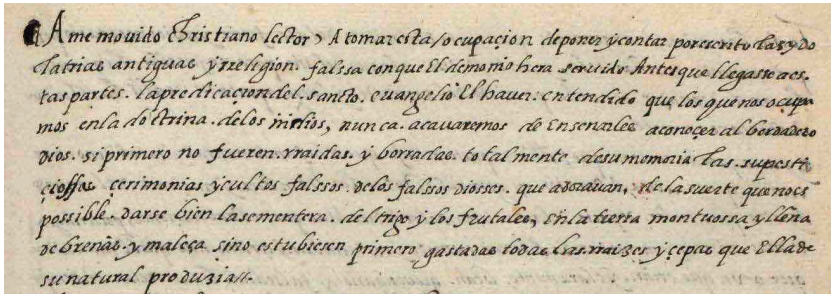 Ame mouido christiano lector, A tomar esta /ocupaçion de poner y contar por escrito las ydo
latrias antiguas y rreligion falssa con que El demonio hera seruido Antes que llegasse a es
tas partes. la predicaçion del. sancto. euangelio El hauer. entendido que los que nos ocupa
mos en la doctrina. de los indios, nunca. acauaremos de Enseñarles a conoçer al berdadero
dios. si primero no fueren. rraidas. y borradas. totalmente de su memoria las. supesti
çiossas çerimonias y cultos falssos. de los falssos diosses. que adorauan, de la suerte que no es
possible. darse bien la sementera. del trigo y los frutales, En la tierra montuossa y llena
de breñas. y maleça si no estubiesen primero gastadas todas las. rraizes y çepas que Ella de
su natural produzia//.